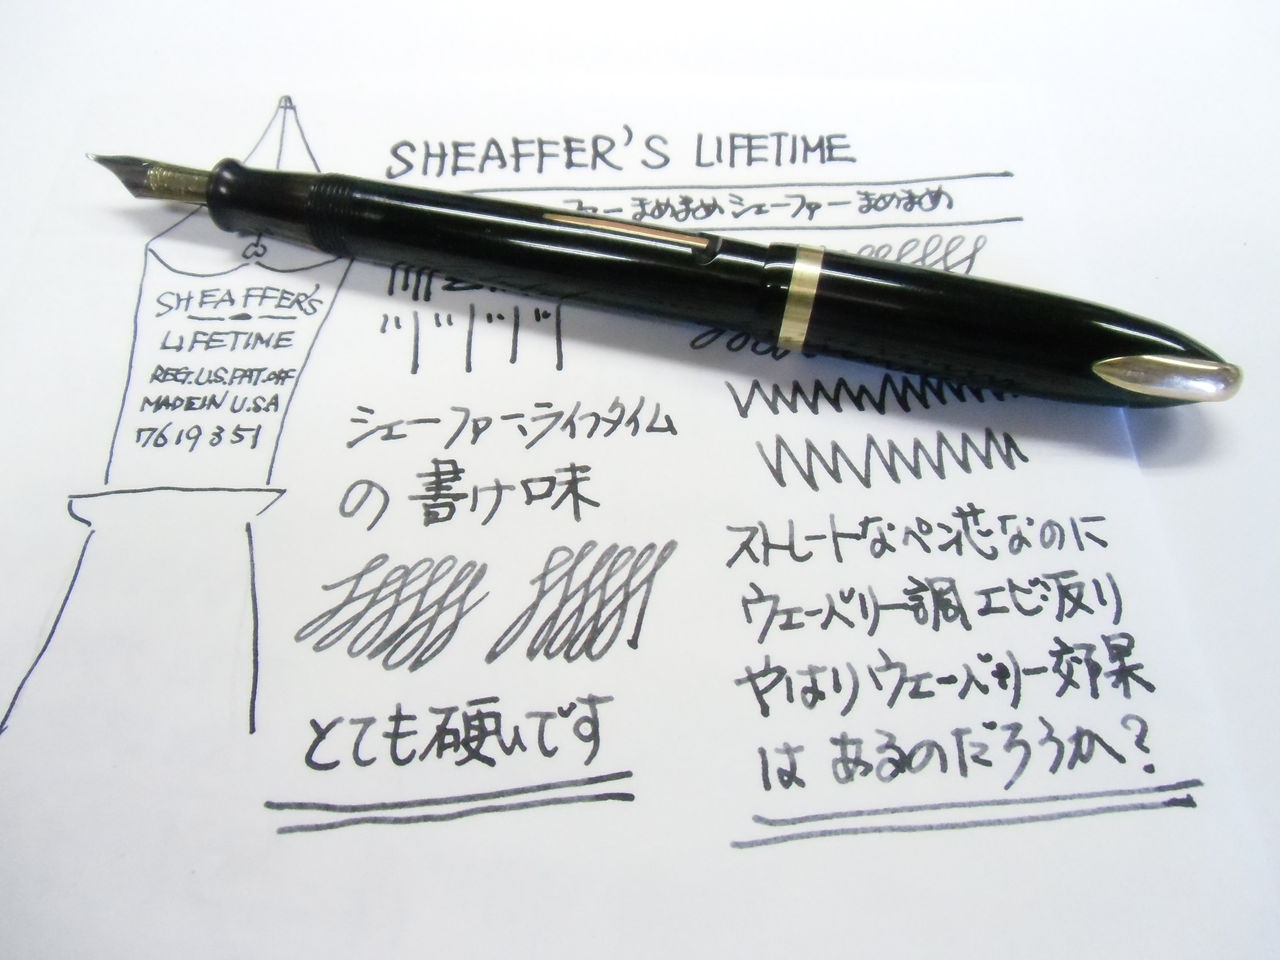 SHEAFFER'S LIFETIME
ファーまめまめシェーファーまめまめ
SHEAFFER'S
LIFETIME
REG.U.S.PAT.OFF
MADE IN U.S.A
7619351
シェーファー、ライフタイム
の書け味
とても硬いです
ストレートなペン芯なのに
ウェーバリー調エビ反り
やはりウェーバリー効果
はあるのだろうか?